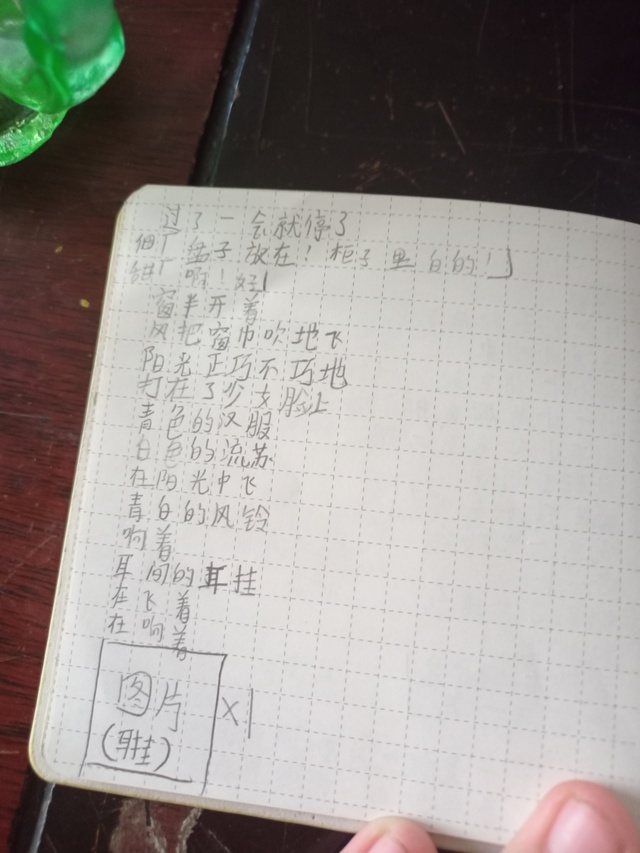 过了一会就停了
盘子放在！柜子里白的！」
啊！好」
窗半开着
风把窗巾吹地飞
阳光正巧不巧地
打在了少女脸上
青色的汉服
白色的流苏
在阳光中飞
青白的风铃
响着
耳间的耳挂
在飞着
在响着
图片
(耳挂)
×1